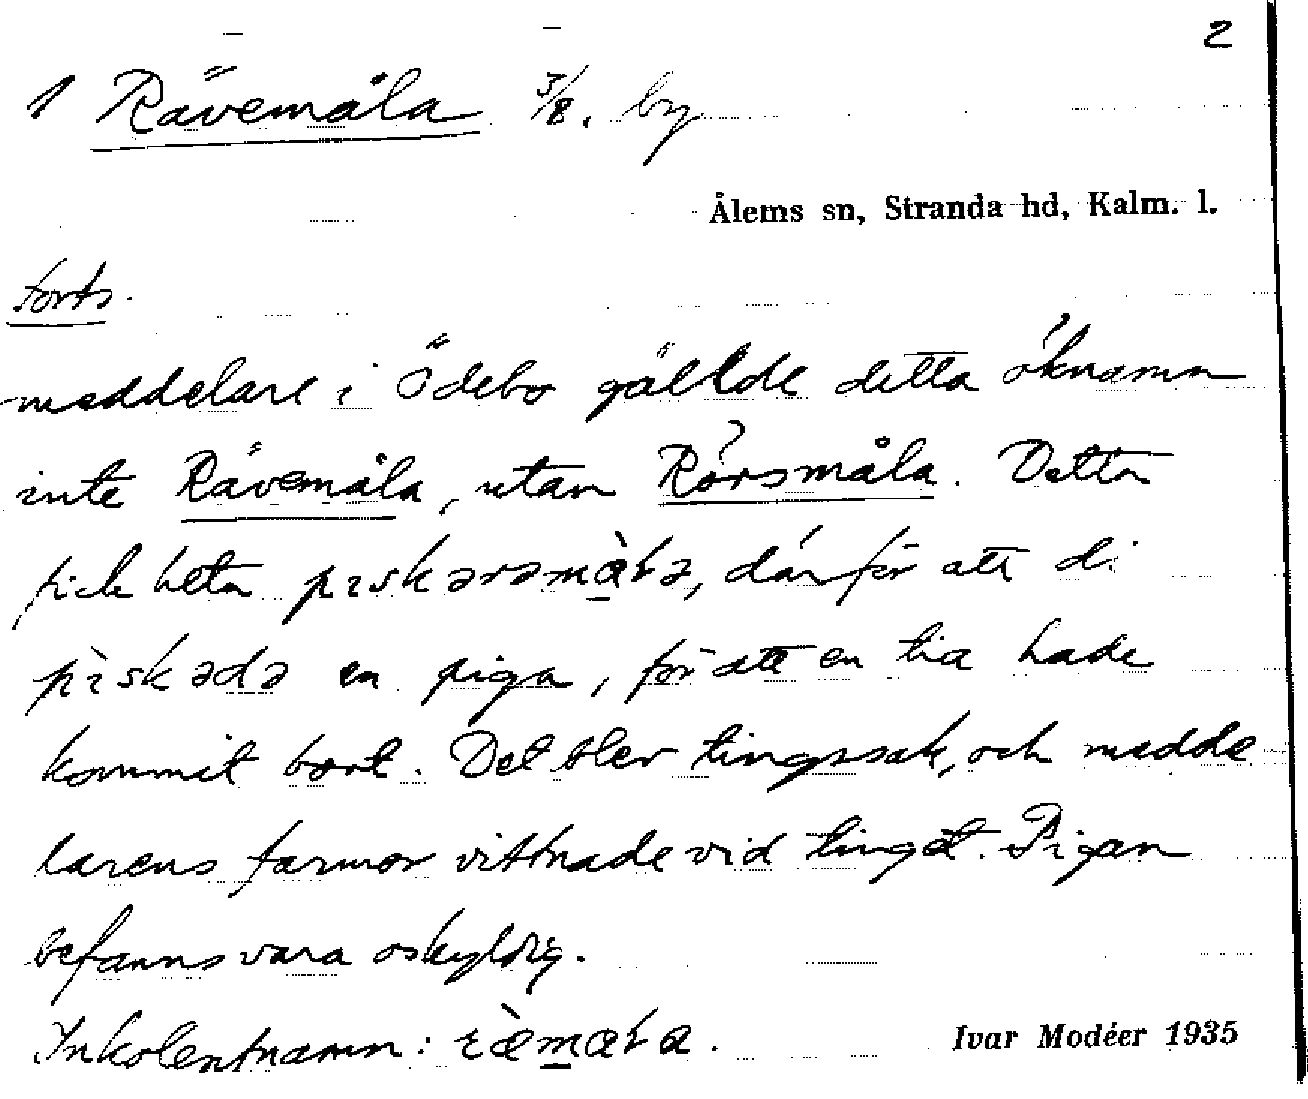 2
1 Rävemåla 5/8. by
Ålems sn, Stranda hd, Kalm. l.
forts.
meddelare i Ödebo gällde detta öknamn
inte Rävemåla, utan Rörsmåla. Detta
fick heta, därför att di
pìskədə en piga, för att en tia hade
kommit bort. Det blev tingssak, och medde
larens farmor vittnade vid tinget. Pigan
befanns vara oskyldig.
Inkolentnamn:
Ivar Modéer 1935